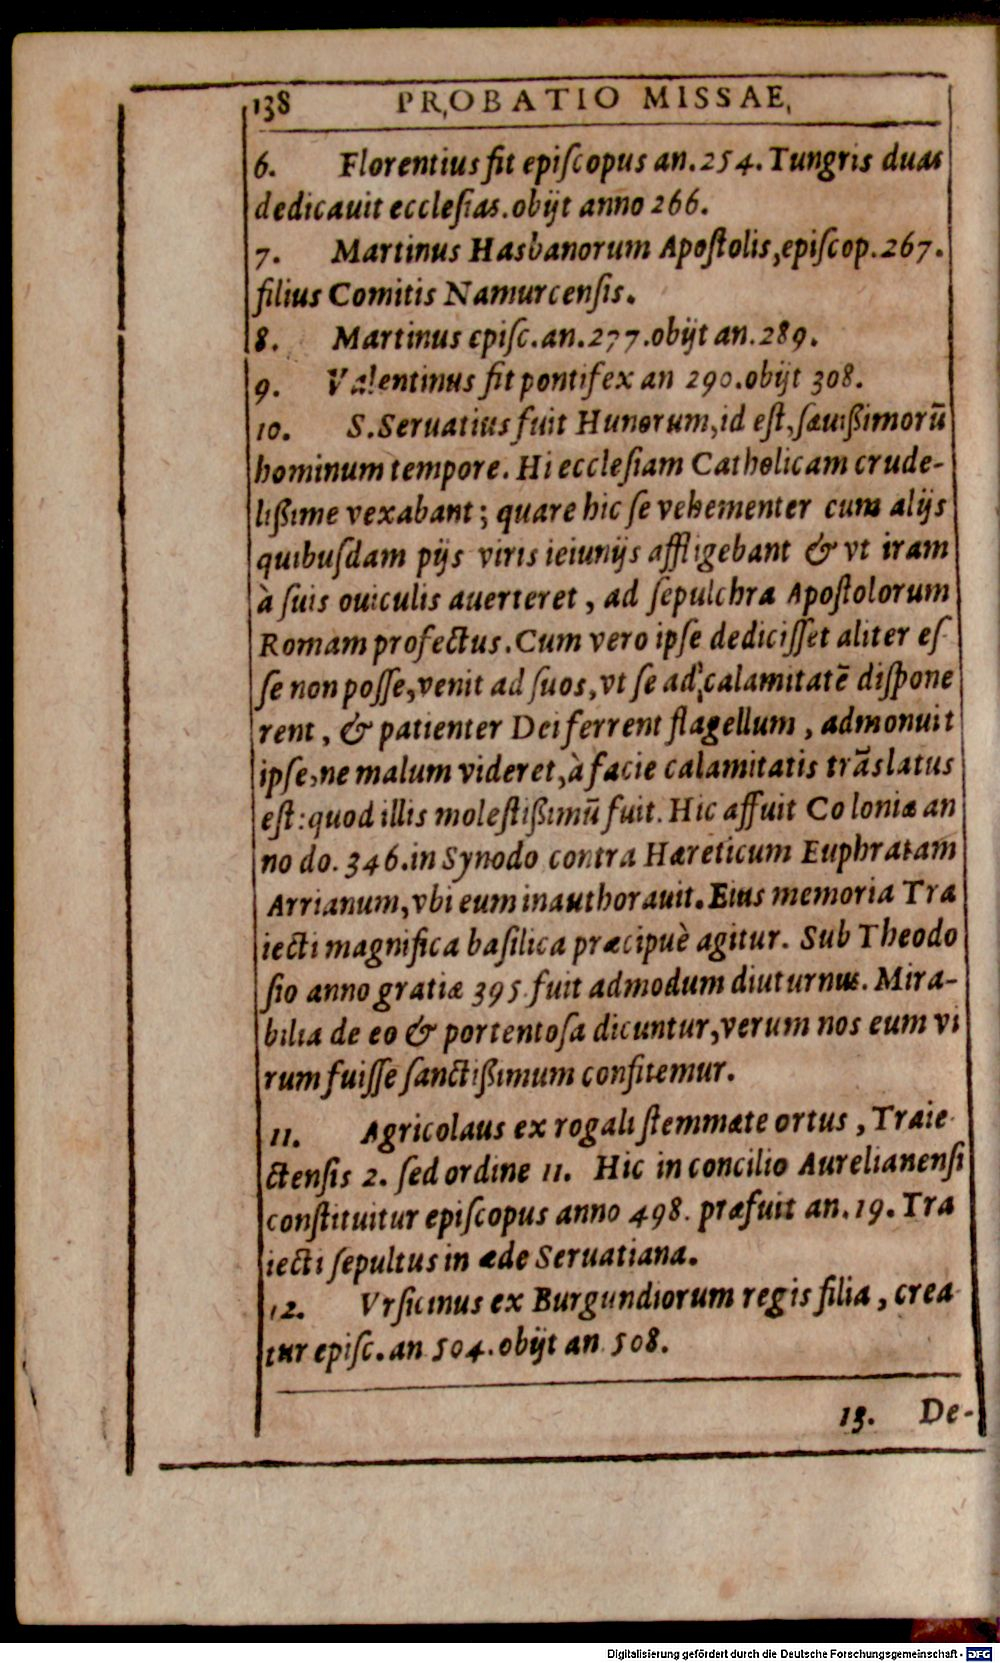 138 PROBATIO MISSAE,
6. Florentius fit epiſcopus an.254. Tungris duas
dedicauit eccleſias. obijt anno 266.
7. Martinus Hasbanorum Apoſtolis, epiſcop.267.
filius Comitis Namurcenſis.
8. Martinus epiſc.an.277.obijt an.289.
9. Valentinus fit pontifex an 290.obijt 308.
10. S.Seruatius fuit Hunorum, id eſt, ſæuißimorū
hominum tempore. Hi eccleſiam Catholicam crude-
lißime vexabant; quare hic ſe vehementer cum alijs
quibuſdam pijs viris ieiunijs affligebant & vt iram
à ſuis ouiculis auerteret, ad ſepulchra Apoſtolorum
Romam profectus. Cum vero ipſe dediciſſet aliter eſ-
ſe non poſſe, venit ad ſuos, vt ſe ad calamitatē diſpone
rent, & patienter Dei ferrent flagellum, admonuit
ipſe, ne malum videret, à facie calamitatis trāslatus
eſt: quod illis moleſtißimū fuit. Hic affuit Coloniæ an
no do. 346. in Synodo contra Hæreticum Euphratam
Arrianum, vbi eum inauthorauit. Eius memoria Tra
iecti magnifica baſilica præcipuè agitur. Sub Theodo
ſio anno gratiæ 395. fuit admodum diuturnus. Mira-
bilia de eo & portentoſa dicuntur, verum nos eum vi
rum fuiſſe ſanctißimum confitemur.
11. Agricolaus ex rogali ſtemmate ortus, Traie-
ctenſis 2. ſed ordine 11. Hic in concilio Aurelianenſi
conſtituitur epiſcopus anno 498. præfuit an.19. Tra
iecti ſepultus in æde Seruatiana.
12. Vrſicinus ex Burgundiorum regis filia, crea-
tur epiſc. an 504. obijt an 508.
13. De-
Digitalisierung gefördert durch die Deutsche Forschungsgemeinschaft - DFG